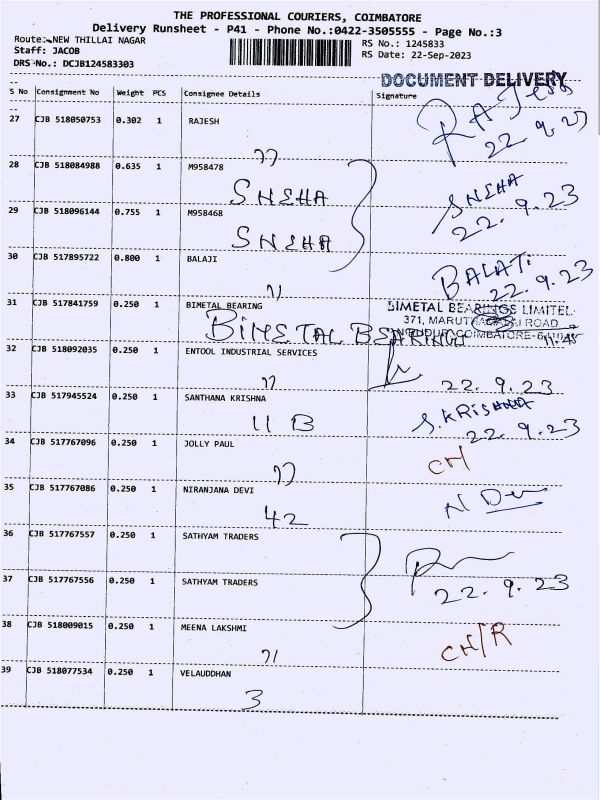 THE PROFESSIONAL COURIERS, COIMBATORE
Delivery Runsheet - P41 - Phone No.:0422-3505555 - Page No.:3
Route: NEW THILLAI NAGAR
RS No.: 1245833
Staff: JACOB
RS Date: 22-Sep-2023
DRS No.: DCJB124583303
DOCUMENT DELIVERY
S No Consignment No Weight PCS Consignee Details Signature
27 CJB 518050753 0.302 1 RAJESH
22 9.23
28 CJB 518084988 0.635 1 M958478
SNEHA SNEHA
22.9.23
29 CJB 518096144 0.755 1 M958468
SNEHA
30 CJB 517895722 0.800 1 BALAJI BALAJI
22.9.23
31 CJB 517841759 0.250 1 BIMETAL BEARING
BIMETAL BEARINGS LIMITED.
371, ROAD
BIMETAL BEARINGS COIMBATORE
32 CJB 518092035 0.250 1 ENTOOL INDUSTRIAL SERVICES
22.9.23
33 CJB 517945524 0.250 1 SANTHANA KRISHNA S.KRISHNA
11 B 22.9.23
34 CJB 517767096 0.250 1 JOLLY PAUL CH
35 CJB 517767086 0.250 1 NIRANJANA DEVI
42
36 CJB 517767557 0.250 1 SATHYAM TRADERS
37 CJB 517767556 0.250 1 SATHYAM TRADERS 22.9.23
38 CJB 518009015 0.250 1 MEENA LAKSHMI CH/R
39 CJB 518077534 0.250 1 VELAUDDHAN
3